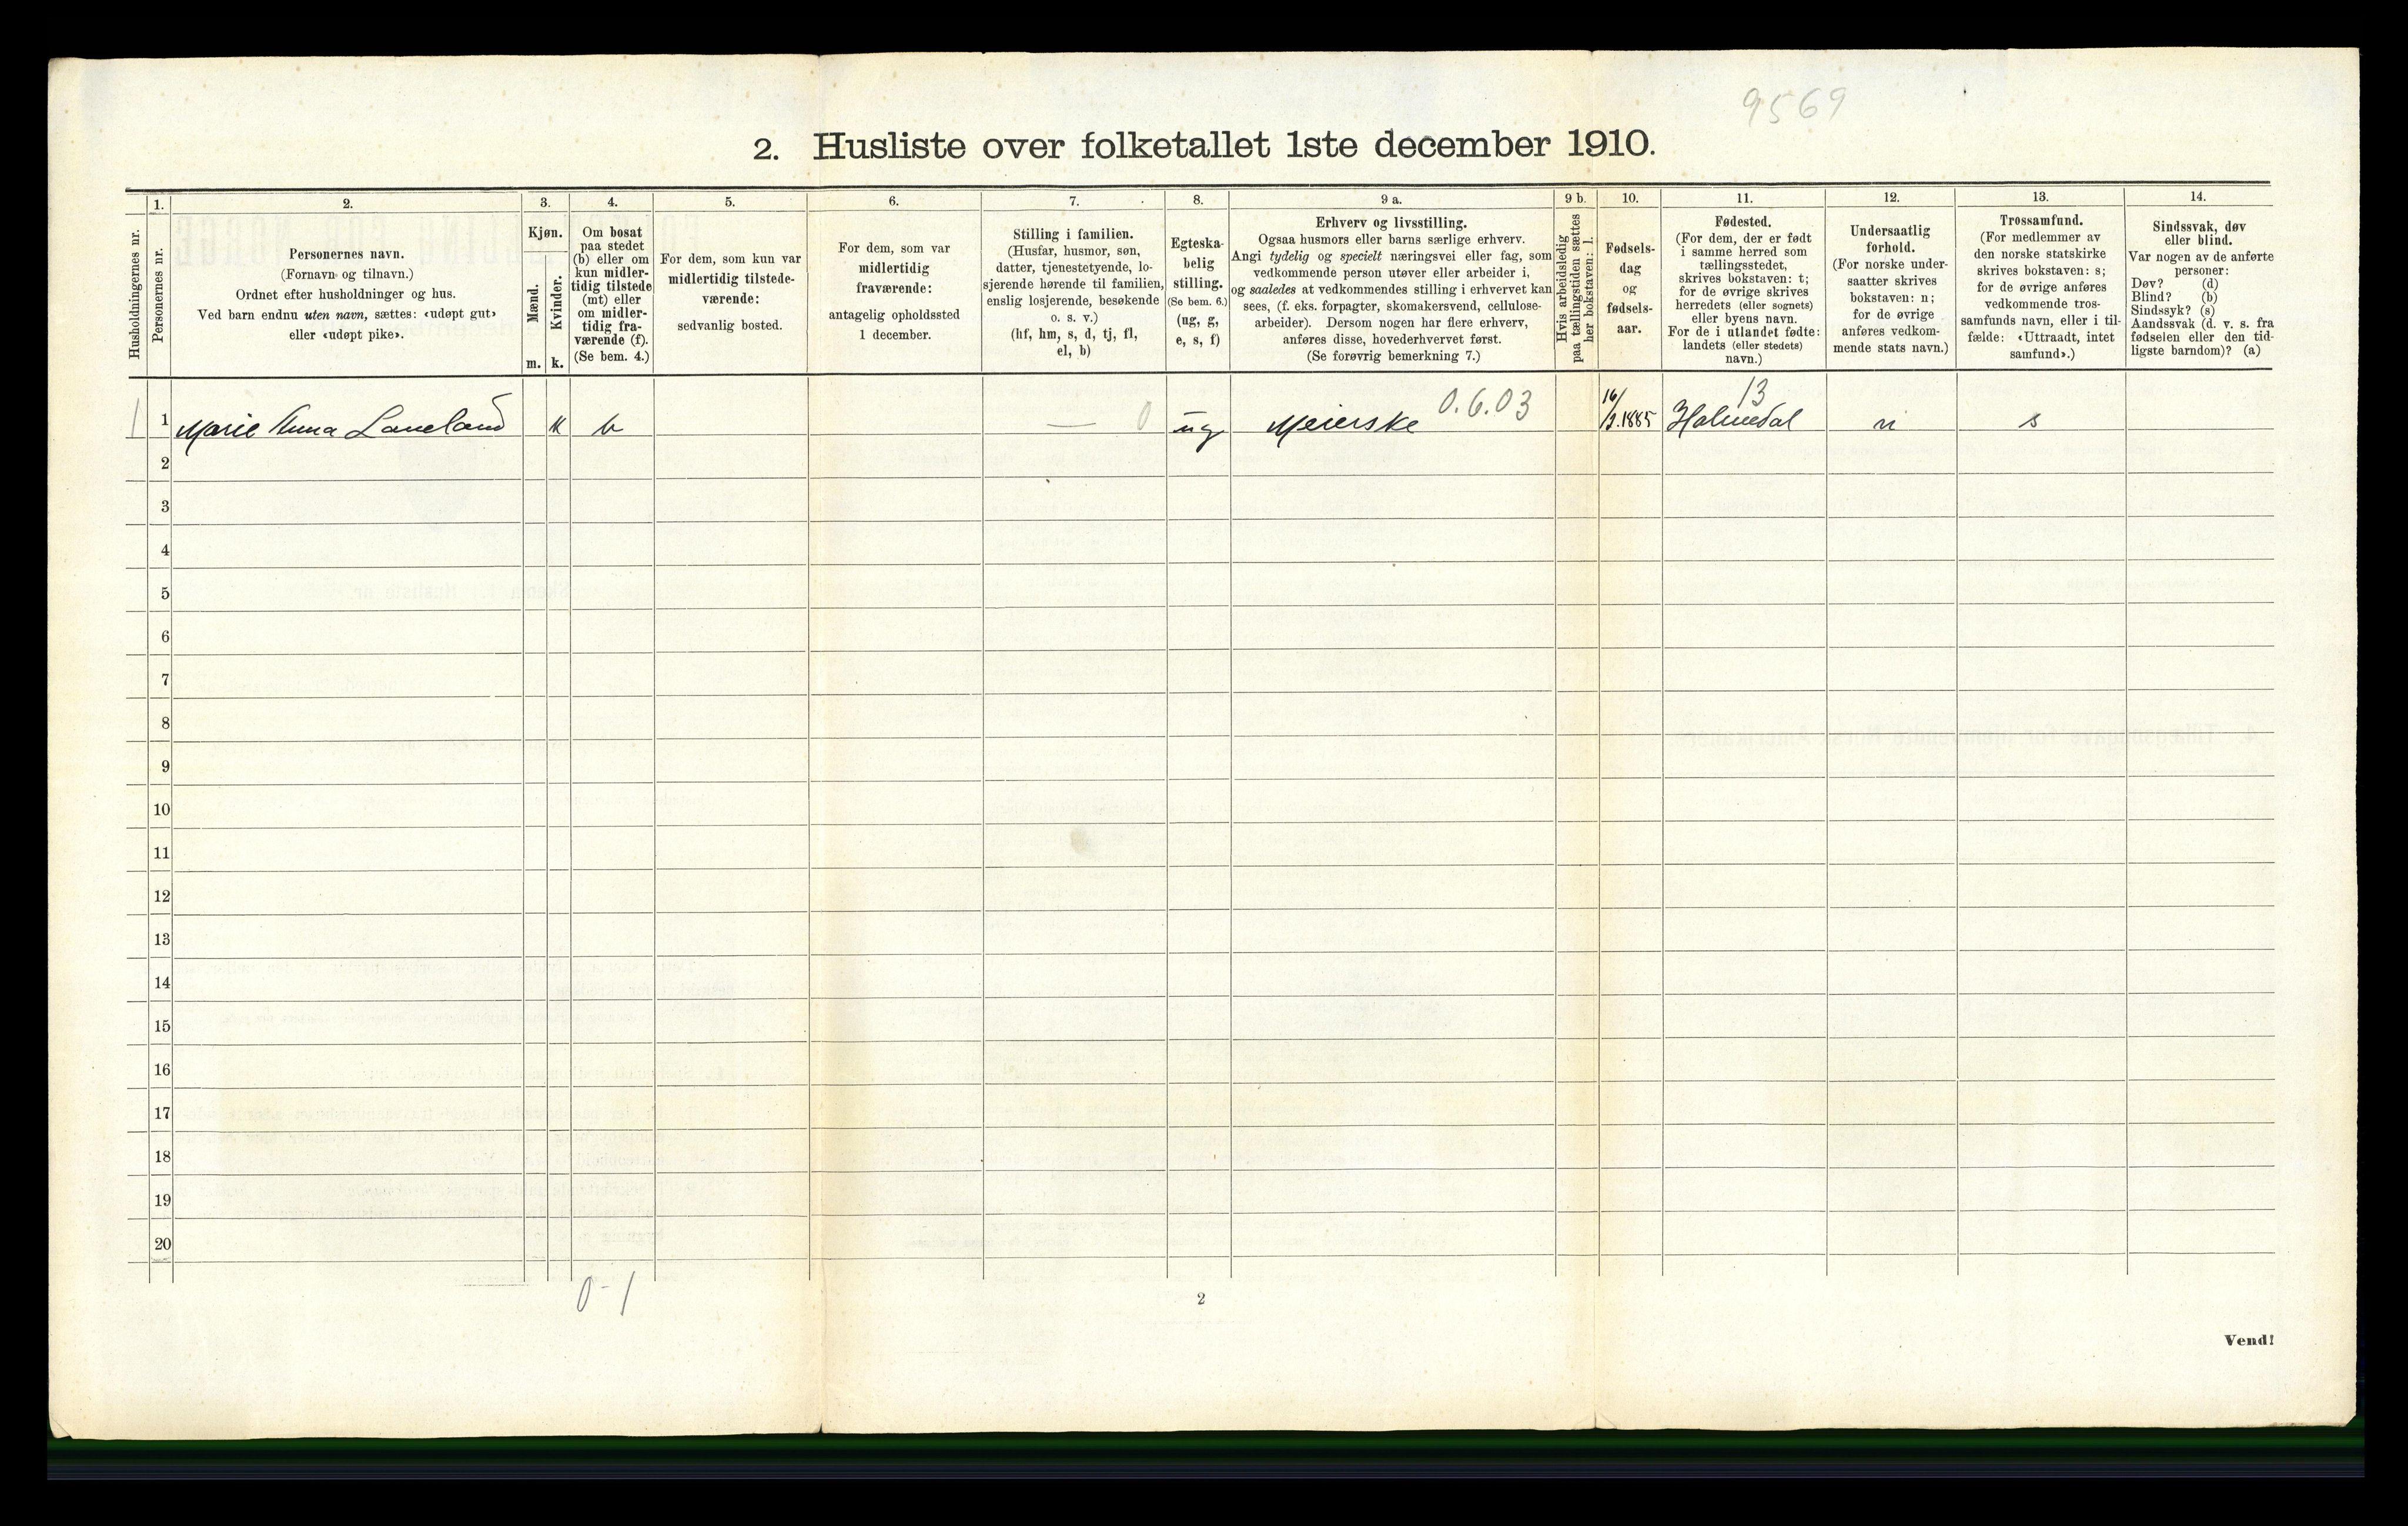 9569
2. Husliste over folketallet 1ste december 1910.
Husholdningernes nr.
1.
Personernes nr.
2.
Personernes navn.
(Fornavn og tilnavn.)
Ordnet efter husholdninger og hus.
Ved barn endnu uten navn, sættes: «udøpt gut»
eller «udøpt pike».
3.
Kjøn.
Mænd.
Kvinder.
m. k.
4.
Om bosat
paa stedet
(b) eller om
kun midler-
tidig tilstede
(mt) eller
om midler-
tidig fra-
værende (f).
(Se bem. 4.)
5.
For dem, som kun var
midlertidig tilstede-
værende:
sedvanlig bosted.
6.
For dem, som var
midlertidig
fraværende:
antagelig opholdssted
1 december.
7.
Stilling i familien.
(Husfar, husmor, søn,
datter, tjenestetyende, lo-
sjerende hørende til familien,
enslig losjerende, besøkende
o. s. v.)
(hf, hm, s, d, tj, fl,
el, b)
8.
Egteska-
belig
stilling.
(Se bem. 6.)
(ug, g,
e, s, f)
9 a.
Erhverv og livsstilling.
Ogsaa husmors eller barns særlige erhverv.
Angi tydelig og specielt næringsvei eller fag, som
vedkommende person utøver eller arbeider i,
og saaledes at vedkommendes stilling i erhvervet kan
sees, (f. eks. forpagter, skomakersvend, cellulose-
arbeider). Dersom nogen har flere erhverv,
anføres disse, hovederhvervet først.
(Se forøvrig bemerkning 7.)
9 b.
Hvis arbeidsledig
paa tællingstiden sættes
her bokstaven: l.
10.
Fødsels-
dag
og
fødsels-
aar.
11.
Fødested.
(For dem, der er født
i samme herred som
tællingsstedet,
skrives bokstaven: t;
for de øvrige skrives
herredets (eller sognets)
eller byens navn.
For de i utlandet fødte:
landets (eller stedets)
navn.)
12.
Undersaatlig
forhold.
(For norske under-
saatter skrives
bokstaven: n;
for de øvrige
anføres vedkom-
mende stats navn.)
13.
Trossamfund.
(For medlemmer av
den norske statskirke
skrives bokstaven: s;
for de øvrige anføres
vedkommende tros-
samfunds navn, eller i til-
fælde: «Uttraadt, intet
samfund».)
14.
Sindssvak, døv
eller blind.
Var nogen av de anførte
personer:
Døv? (d)
Blind? (b)
Sindssyk? (s)
Aandssvak (d. v. s. fra
fødselen eller den tid-
ligste barndom)? (a)
1 1 Marie Anna Laneland k b — 0 ug Meierske 0.6.03 16/3.1885 13 Holmedal n s
2
3
4
5
6
7
8
9
10
11
12
13
14
15
16
17
18
19
20
0-1
2
Vend!